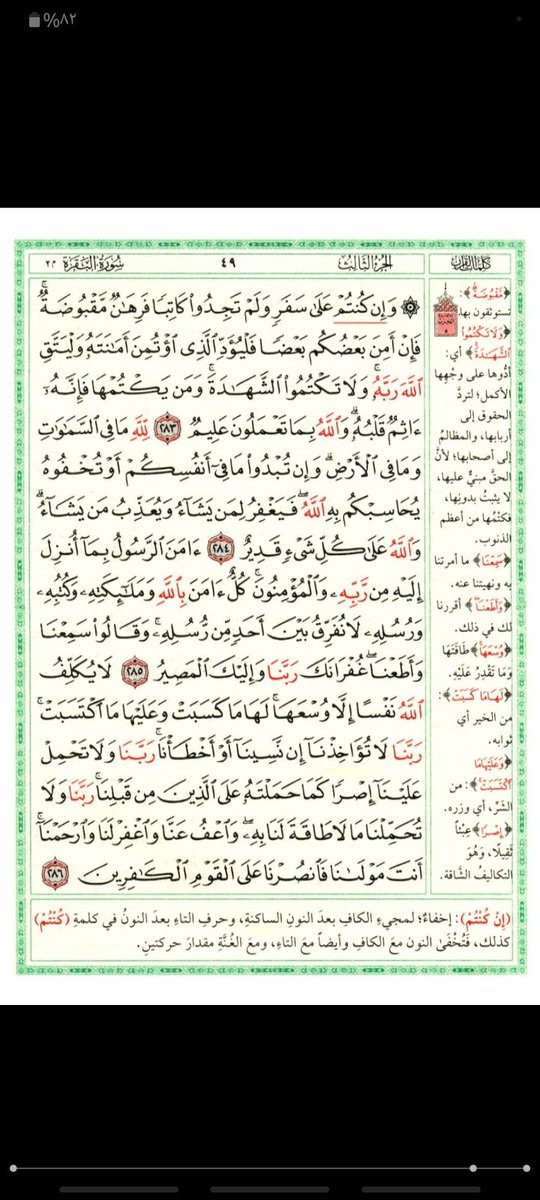 %٨٢
كلمات القرآن
الجزء الثالث
٤٩
سورة البقرة ٢
۞ وَإِن كُنتُمْ عَلَىٰ سَفَرٍ وَلَمْ تَجِدُوا۟ كَاتِبًا فَرِهَـٰنٌ مَّقْبُوضَةٌ ۖ
فَإِنْ أَمِنَ بَعْضُكُم بَعْضًا فَلْيُؤَدِّ ٱلَّذِى ٱؤْتُمِنَ أَمَـٰنَتَهُۥ وَلْيَتَّقِ
ٱللَّهَ رَبَّهُۥ ۗ وَلَا تَكْتُمُوا۟ ٱلشَّهَـٰدَةَ ۚ وَمَن يَكْتُمْهَا فَإِنَّهُۥٓ
ءَاثِمٌ قَلْبُهُۥ ۗ وَٱللَّهُ بِمَا تَعْمَلُونَ عَلِيمٌ ٢٨٣ لِّلَّهِ مَا فِى ٱلسَّمَـٰوَٰتِ
وَمَا فِى ٱلْأَرْضِ ۗ وَإِن تُبْدُوا۟ مَا فِىٓ أَنفُسِكُمْ أَوْ تُخْفُوهُ
يُحَاسِبْكُم بِهِ ٱللَّهُ ۖ فَيَغْفِرُ لِمَن يَشَآءُ وَيُعَذِّبُ مَن يَشَآءُ ۗ
وَٱللَّهُ عَلَىٰ كُلِّ شَىْءٍ قَدِيرٌ ٢٨٤ ءَامَنَ ٱلرَّسُولُ بِمَآ أُنزِلَ
إِلَيْهِ مِن رَّبِّهِۦ وَٱلْمُؤْمِنُونَ ۚ كُلٌّ ءَامَنَ بِٱللَّهِ وَمَلَـٰٓئِكَتِهِۦ وَكُتُبِهِۦ
وَرُسُلِهِۦ لَا نُفَرِّقُ بَيْنَ أَحَدٍ مِّن رُّسُلِهِۦ ۚ وَقَالُوا۟ سَمِعْنَا
وَأَطَعْنَا ۖ غُفْرَانَكَ رَبَّنَا وَإِلَيْكَ ٱلْمَصِيرُ ٢٨٥ لَا يُكَلِّفُ
ٱللَّهُ نَفْسًا إِلَّا وُسْعَهَا ۚ لَهَا مَا كَسَبَتْ وَعَلَيْهَا مَا ٱكْتَسَبَتْ ۗ
رَبَّنَا لَا تُؤَاخِذْنَآ إِن نَّسِينَآ أَوْ أَخْطَأْنَا ۚ رَبَّنَا وَلَا تَحْمِلْ
عَلَيْنَآ إِصْرًا كَمَا حَمَلْتَهُۥ عَلَى ٱلَّذِينَ مِن قَبْلِنَا ۚ رَبَّنَا وَلَا
تُحَمِّلْنَا مَا لَا طَاقَةَ لَنَا بِهِۦ ۖ وَٱعْفُ عَنَّا وَٱغْفِرْ لَنَا وَٱرْحَمْنَآ ۚ
أَنتَ مَوْلَىٰنَا فَٱنصُرْنَا عَلَى ٱلْقَوْمِ ٱلْكَـٰفِرِينَ ٢٨٦
﴿مَّقْبُوضَةٌ﴾:
تستوثقون بها.
﴿وَلَا تَكْتُمُوا
الشَّهَادَةَ﴾ أي:
أدُّوها على وجْهِها
الأكمل؛ لتردَّ
الحقوق إلى
أربابها، والمظالمُ
إلى أصحابها؛ لأنَّ
الحقَّ مبنيٌّ عليها،
لا يثبتُ بدونِها،
فكتمُها من أعظم
الذنوب.
﴿سَمِعْنَا﴾ ما أمرتنا
به ونهيتنا عنه.
﴿وَأَطَعْنَا﴾ أقررنا
لك في ذلك.
﴿وُسْعَهَا﴾ طَاقَتَهَا
وَمَا تَقْدِرُ عَلَيْهِ.
﴿لَهَا مَا كَسَبَتْ﴾:
من الخير أي
ثوابه.
﴿وَعَلَيْهَا مَا
اكْتَسَبَتْ﴾: من
الشَّرِّ، أي وزره.
﴿إِصْرًا﴾ عِبْئًا
ثَقِيلًا، وَهُوَ
التكاليفُ الشَّاقة.
(إِنْ كُنْتُمْ): إخفاءٌ؛ لمجيءِ الكافِ بعدَ النونِ الساكنةِ، وحرفِ التاءِ بعدَ النونُ في كلمةِ (كُنْتُمْ)
كذلك، فَتُخْفَىٰ النون معَ الكافِ وأيضاً معَ التاءِ، ومعَ الغُنَّةِ مقدارَ حركتينِ.